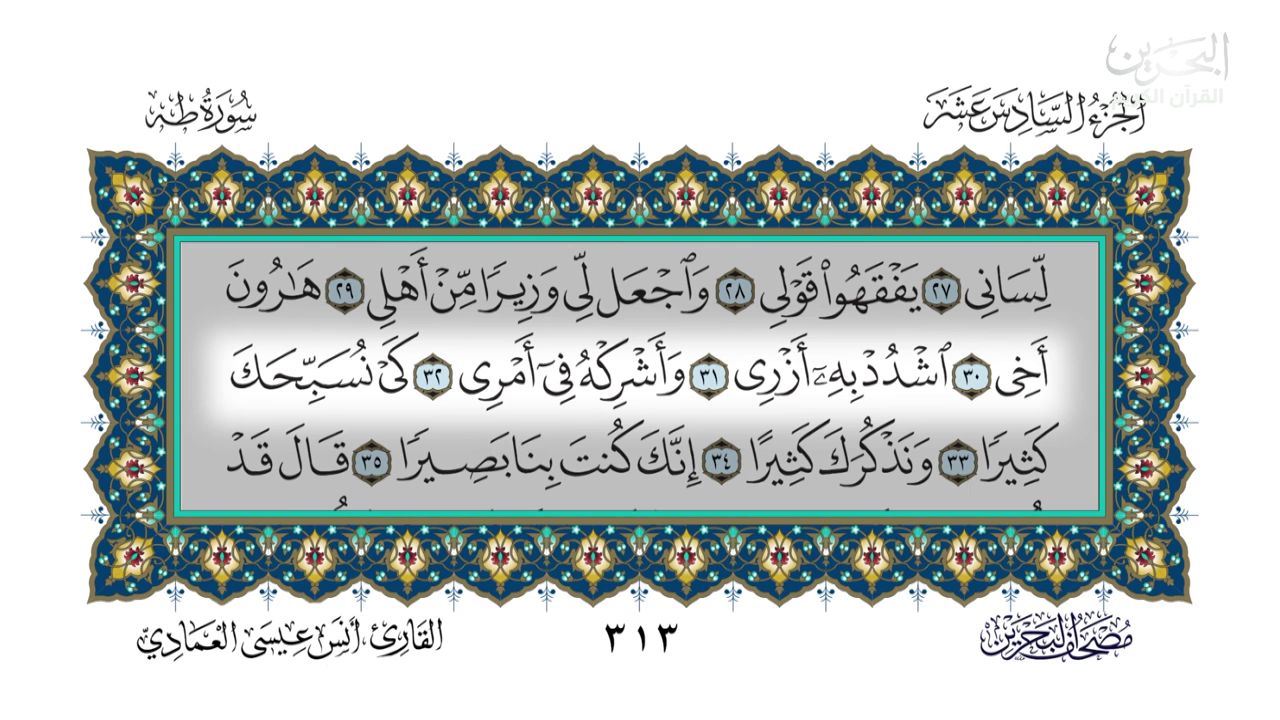 البحرين
القرآن الكريم
الجزء السادس عشر
سورة طه
لِّسَانِى ٢٧ يَفْقَهُوا۟ قَوْلِى ٢٨ وَٱجْعَل لِّى وَزِيرًا مِّنْ أَهْلِى ٢٩ هَـٰرُونَ
أَخِى ٣٠ ٱشْدُدْ بِهِۦٓ أَزْرِى ٣١ وَأَشْرِكْهُ فِىٓ أَمْرِى ٣٢ كَىْ نُسَبِّحَكَ
كَثِيرًا ٣٣ وَنَذْكُرَكَ كَثِيرًا ٣٤ إِنَّكَ كُنتَ بِنَا بَصِيرًا ٣٥ قَالَ قَدْ
مصحف البحرين
٣١٣
القارئ، أنس عيسى العمادي